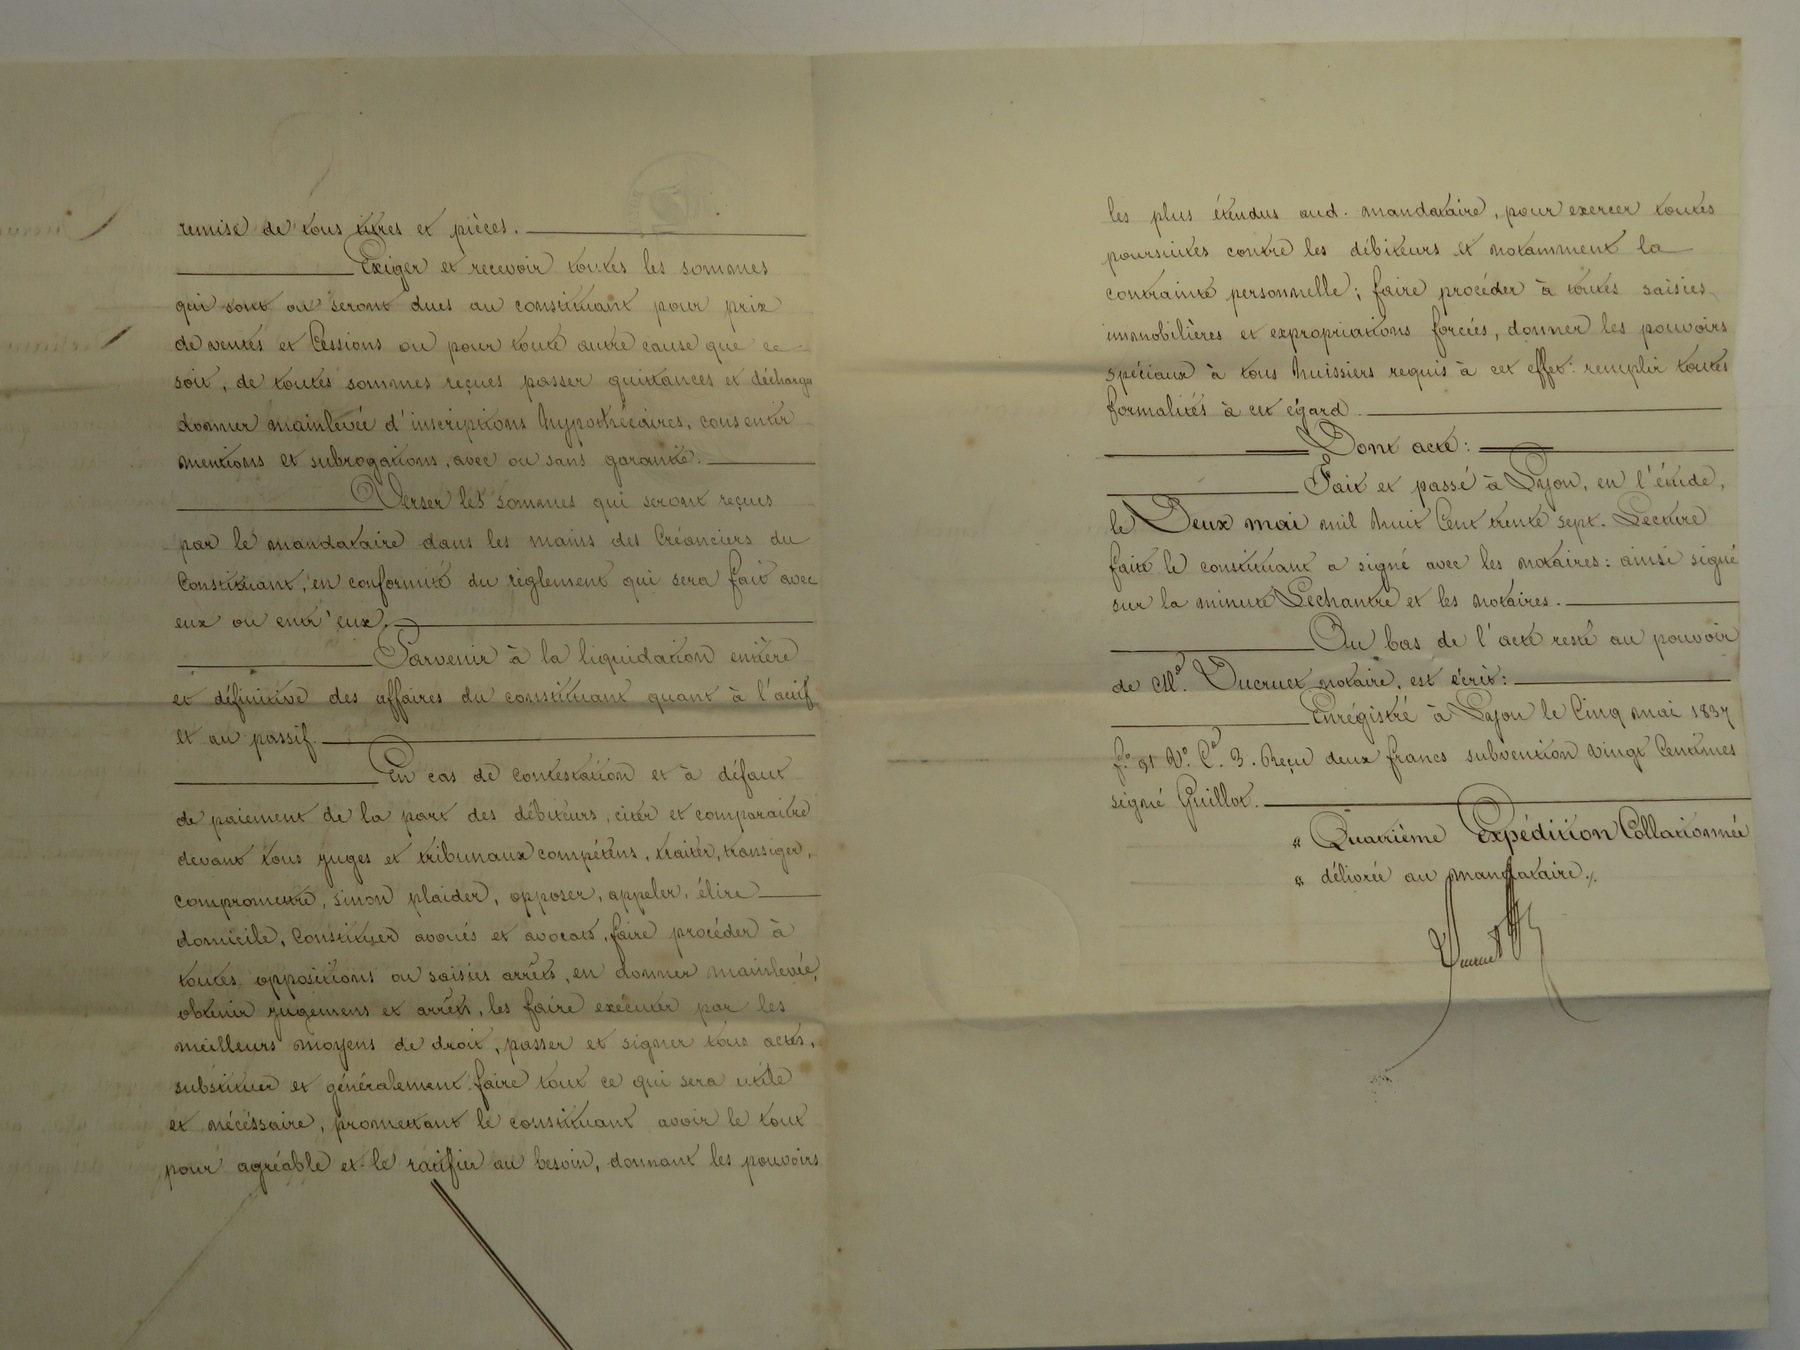 remise de tous titres et pièces.
Exiger et recevoir toutes les sommes
qui sont ou seront dues au constituant pour prix
de ventes et Cessions ou pour toute autre cause que ce
soit, de toutes sommes reçues passer quittances et décharge
donner mainlevée d'inscriptions hypothécaires, consentir
mentions et subrogations, avec ou sans garantie.
Verser les sommes qui seront reçues
par le mandataire dans les mains des Créanciers du
Constituant, en conformité du règlement qui sera fait avec
eux ou entr'eux.
Parvenir à la liquidation entière
et définitive des affaires du constituant quant à l'actif
et au passif.
En cas de contestation et à défaut
de paiement de la part des débiteurs, citer et comparaitre
devant tous juges et tribunaux compétens, traiter, transiger,
compromettre, sinon plaider, opposer, appeler, élire
domicile, Constituer avoués et avocats, faire procéder à
toutes oppositions ou saisies arrêts, en donner mainlevée,
obtenir jugemens et arrêts, les faire exécuter par les
meilleurs moyens de droit, passer et signer tous actes,
substituer et généralement faire tout ce qui sera utile
et nécéssaire, promettant le constituant avoir le tout
pour agréable et le ratifier au besoin, donnant les pouvoirs
les plus étendus aud. mandataire, pour exercer toutes
poursuites contre les débiteurs et notamment la
contrainte personnelle; faire procéder à toutes saisies
immobilières et expropriations forcées, donner les pouvoirs
spéciaux à tous huissiers requis à cet effet: remplir toutes
formalités à cet égard.
Dont acte:
Fait et passé à Lyon, en l'étude,
le Deux mai mil huit Cent trente sept. Lecture
faite le constituant a signé avec les notaires: ainsi signé
sur la minute Lechantre et les notaires.
Au bas de l'acte resté au pouvoir
de Me. Ducruet notaire, est écrit:
Enrégistré à Lyon le Cinq mai 1837
fo. 91 Vo. Ce. 3. Reçu deux francs subvention vingt Centimes
signé Guillot.
" Quatrième Expédition Collationnée
" délivrée au mandataire ./.
Ducruet